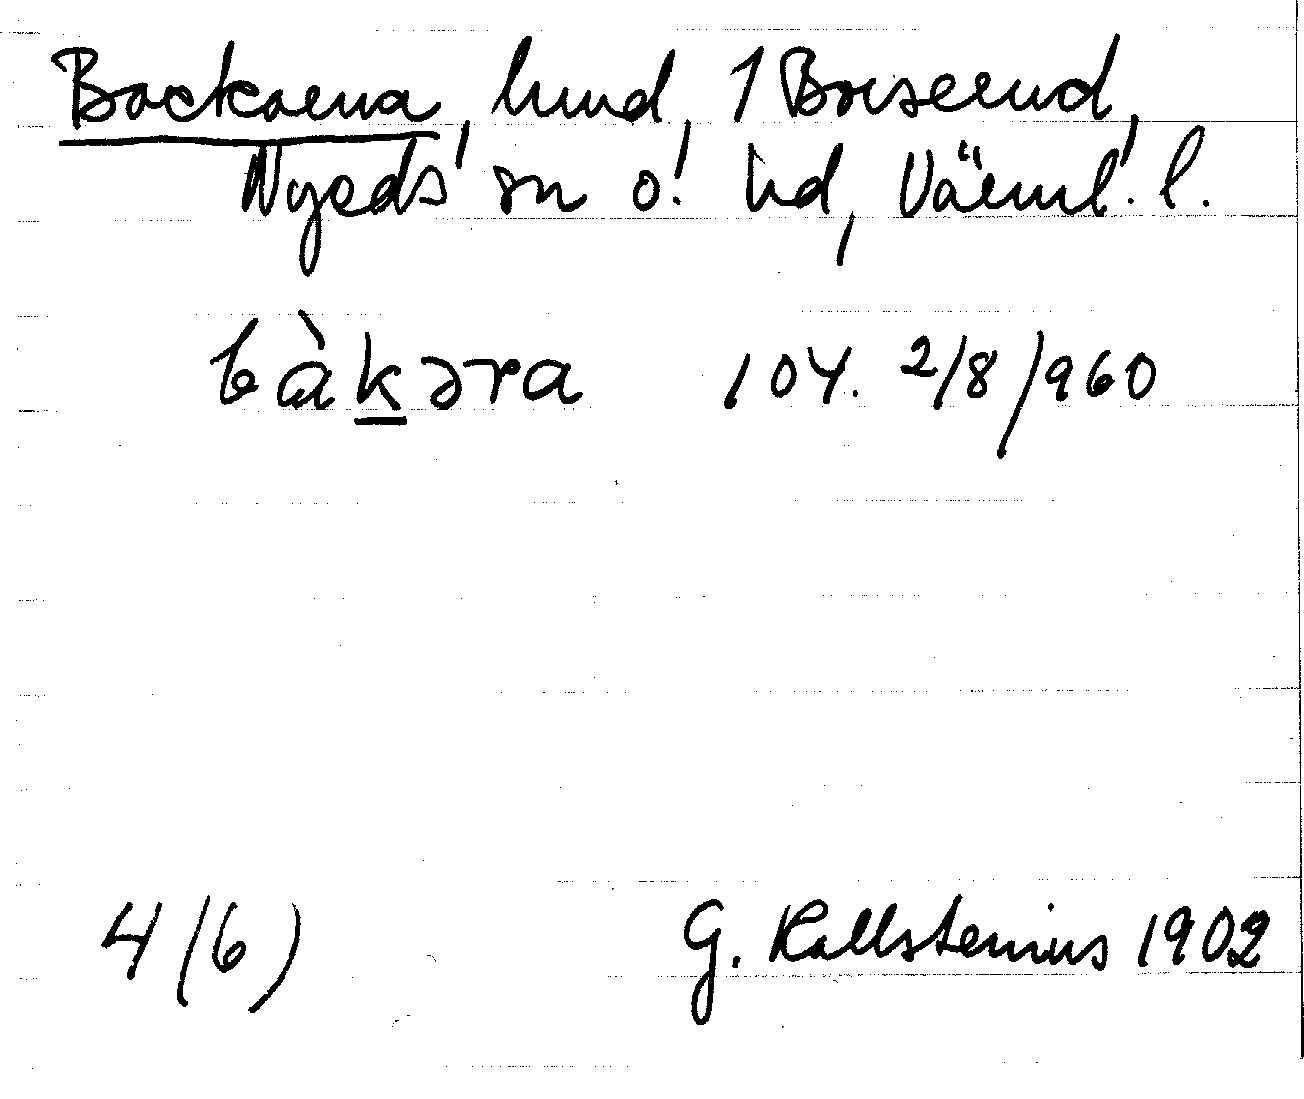 Backarna, hmd, 1 Borserud,
Nyeds sn o. hd, Värml. l.
bàkəra 104. 2/8 1960
4 (6) G. Kallstenius 1902